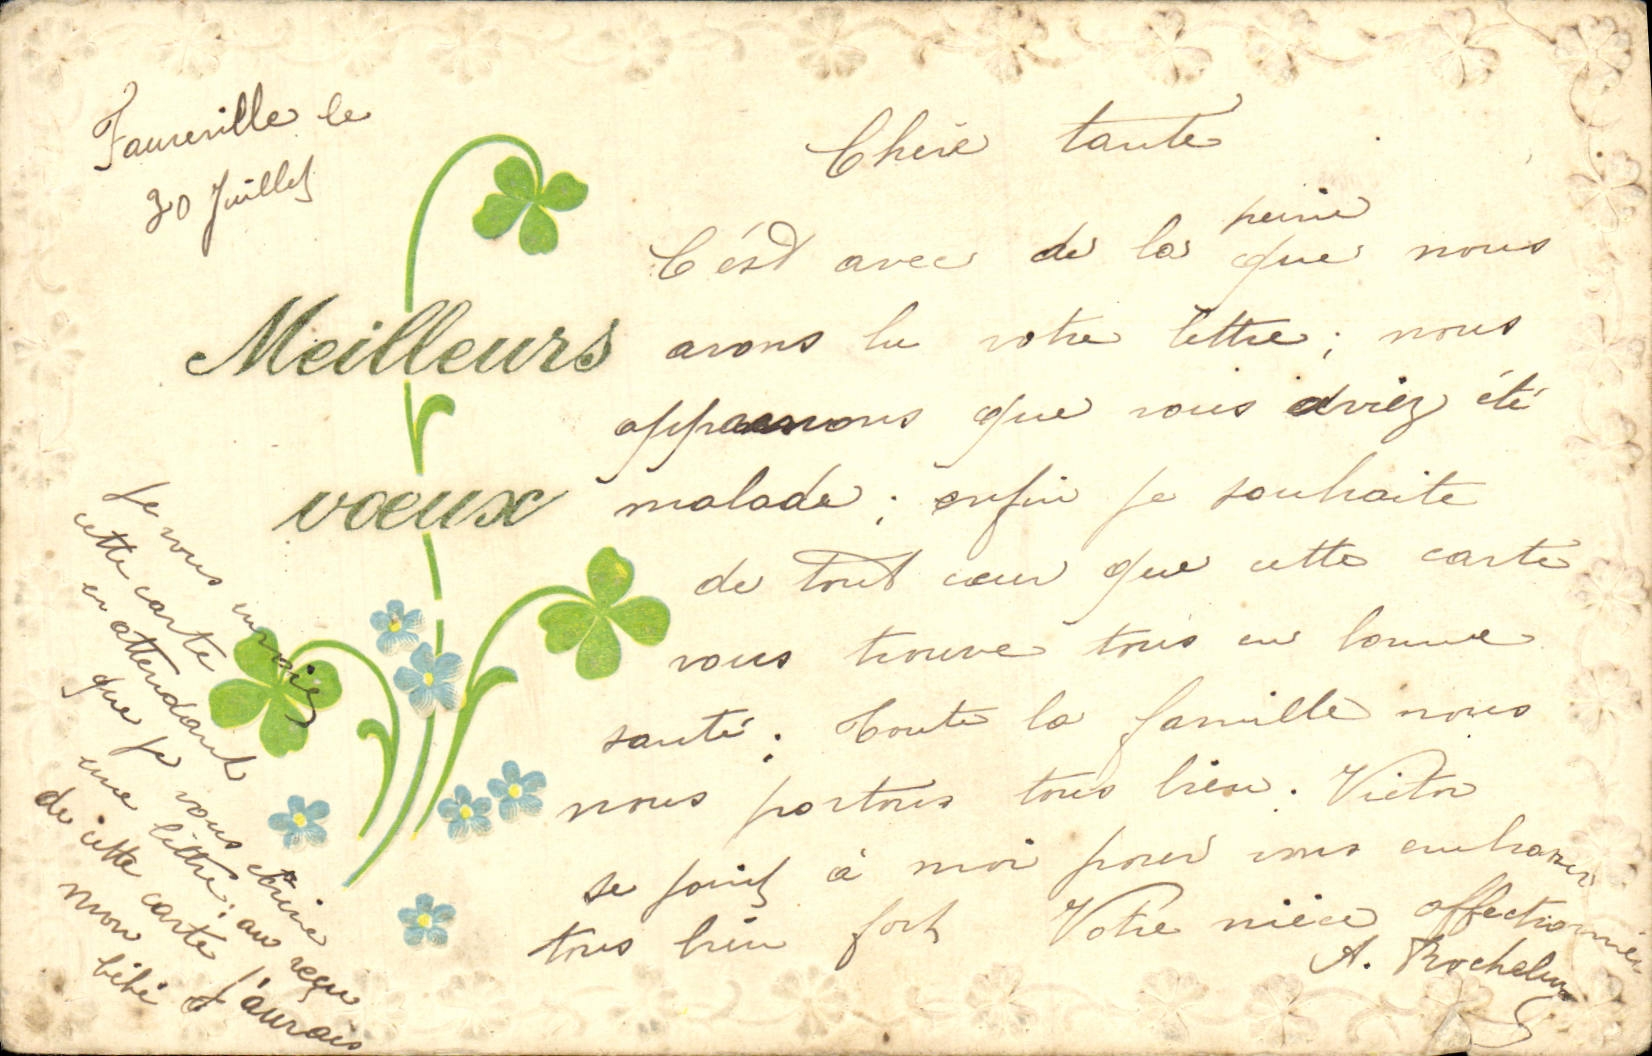 Faureville le
30 Juillet
Meilleurs
voeux
Chère tante
C'ést avec de la peine que nous
avons lu votre lettre ; nous
apprenons que vous aviez été
malade ; enfin je souhaite
de tout cœur que cette carte
vous trouve tous en bonne
santé ; Toute la famille nous
nous portons tous bien. Victor
se joint à moi pour vous embrasser
tous bien fort Votre nièce affectionnée
A.
Je vous envoies
cette carte
en attendant
que je vous écrive
une lettre ; au reçu
de cette carte j'aurais
mon bébé